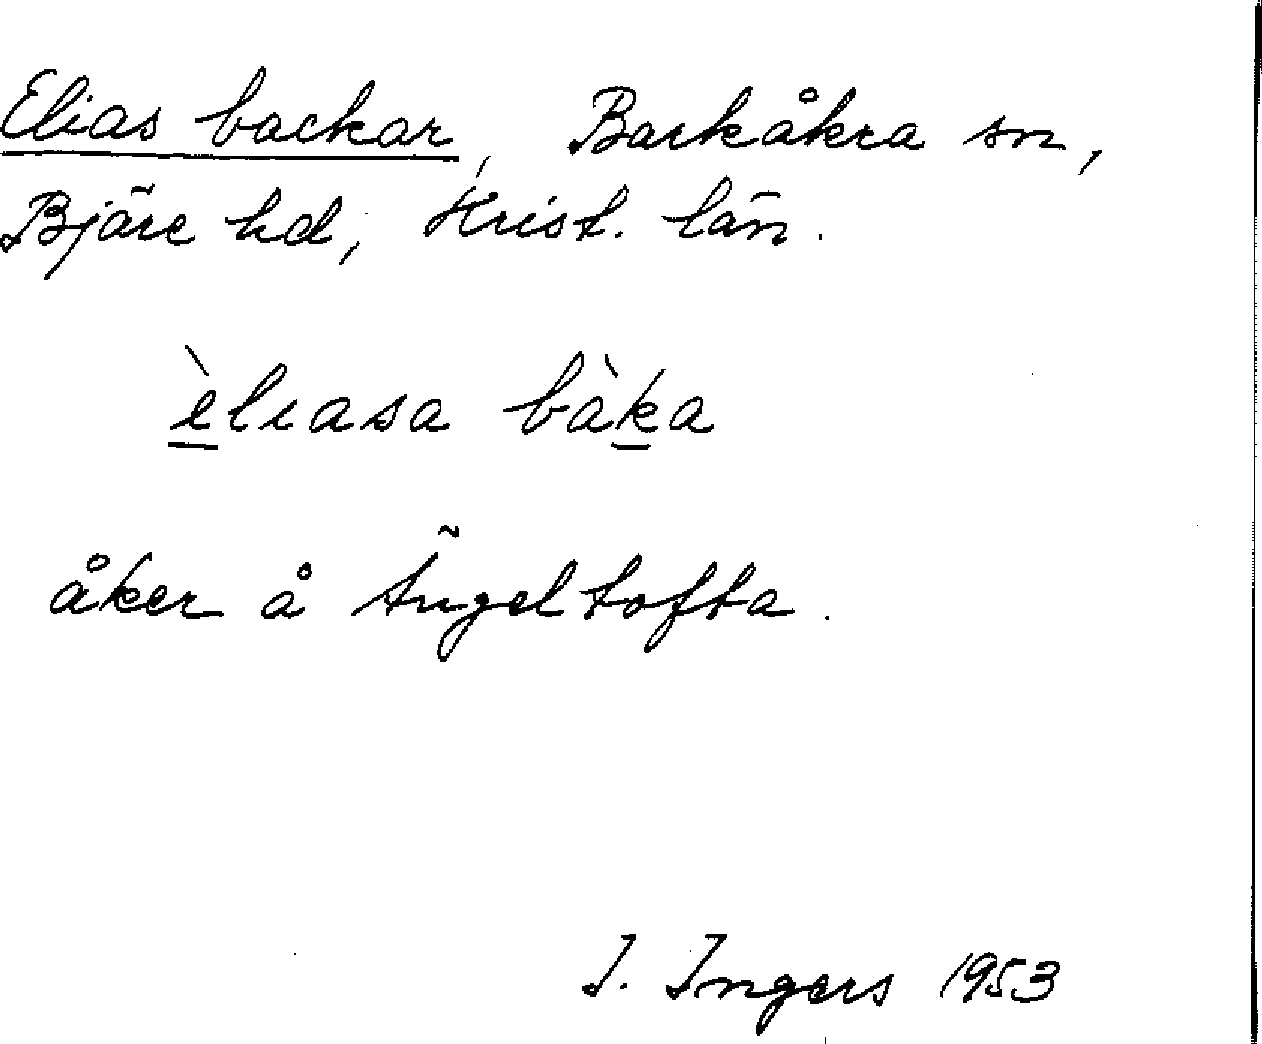 Elias backar, Barkåkra sn,
Bjäre hd, Krist. län.
èliasa bàka
åker å Ängeltofta.
I. Ingers 1953